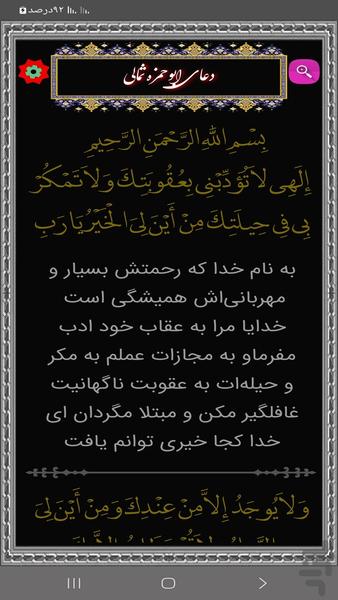 ۹۲درصد
دعای ابوحمزه ثمالی
بِسْمِ اللهِ الرَّحْمَنِ الرَّحِيمِ
إِلَهِي لاَ تُؤَدِّبْنِي بِعُقُوبَتِكَ وَ لاَ تَمْكُرْ
بِي فِي حِيلَتِكَ مِنْ أَيْنَ لِيَ الْخَيْرُ يَا رَبِّ
به نام خدا که رحمتش بسیار و
مهربانی‌اش همیشگی است
خدایا مرا به عقاب خود ادب
مفرماو به مجازات عملم به مکر
و حیله‌ات به عقوبت ناگهانیت
غافلگیر مکن و مبتلا مگردان ای
خدا کجا خیری توانم یافت
وَ لاَ يُوجَدُ إِلاَّ مِنْ عِنْدِكَ وَ مِنْ أَيْنَ لِيَ